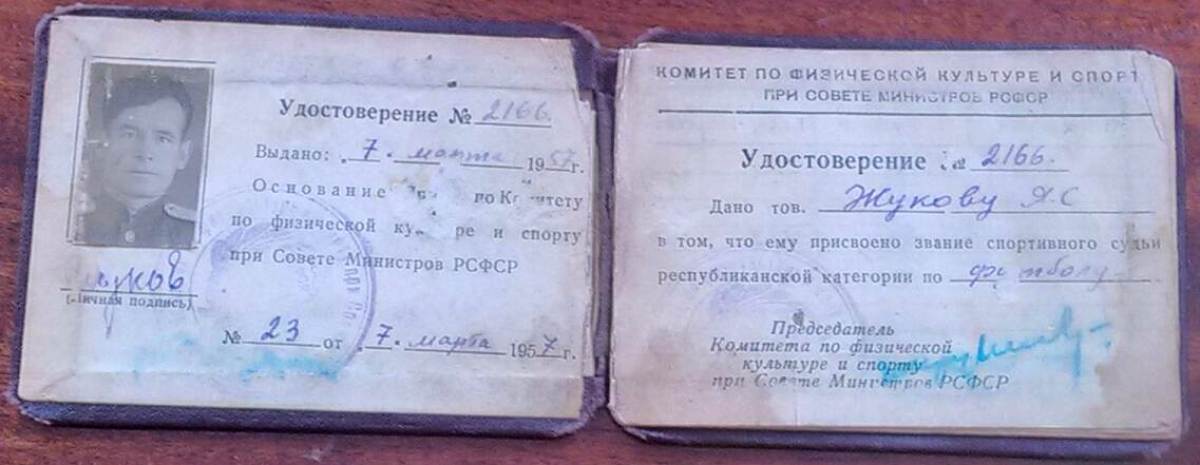 Удостоверение № 2166.
Выдано: „7“ марта 1957г.
Основание по Комитету
по физической ку ре и спорту
при Совете Министров РСФСР
(Личная подпись)
№ 23 от „7“ марта 1957г.
КОМИТЕТ ПО ФИЗИЧЕСКОЙ КУЛЬТУРЕ И СПОРТ
ПРИ СОВЕТЕ МИНИСТРОВ РСФСР
Удостоверение № 2166.
Дано тов. Жукову Я.С
в том, что ему присвоено звание спортивного судьи
республиканской категории по футболу
Председатель
Комитета по физической
культуре и спорту
при Совете Министров РСФСР